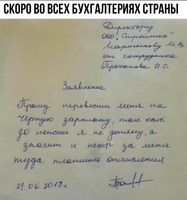 СКОРО ВО ВСЕХ БУХГАЛТЕРИЯХ СТРАНЫ
Директору
ООО "Строитель"
от сотрудника
Прохокова И.С.
Заявление
Прошу перевести меня на
черную зарплату, так как
до пенсии я не доживу, а
значит и нехер за меня
туда платить отчисления
21.06.2018г.